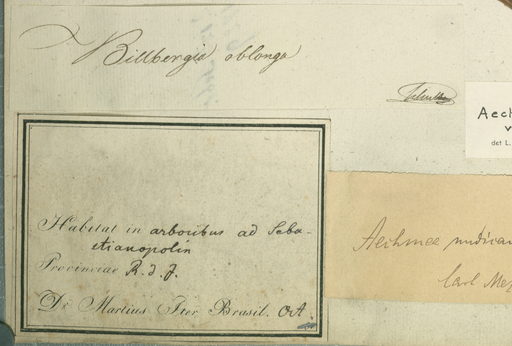 Billbergia oblonga
Schult
Aech
v
det L.
Habitat in arboribus ad Seba-
stianopolin
Provinciae R. d. J.
Dr Martius Iter Brasil. Oct.
Aechmea nudicau
Carl Mez